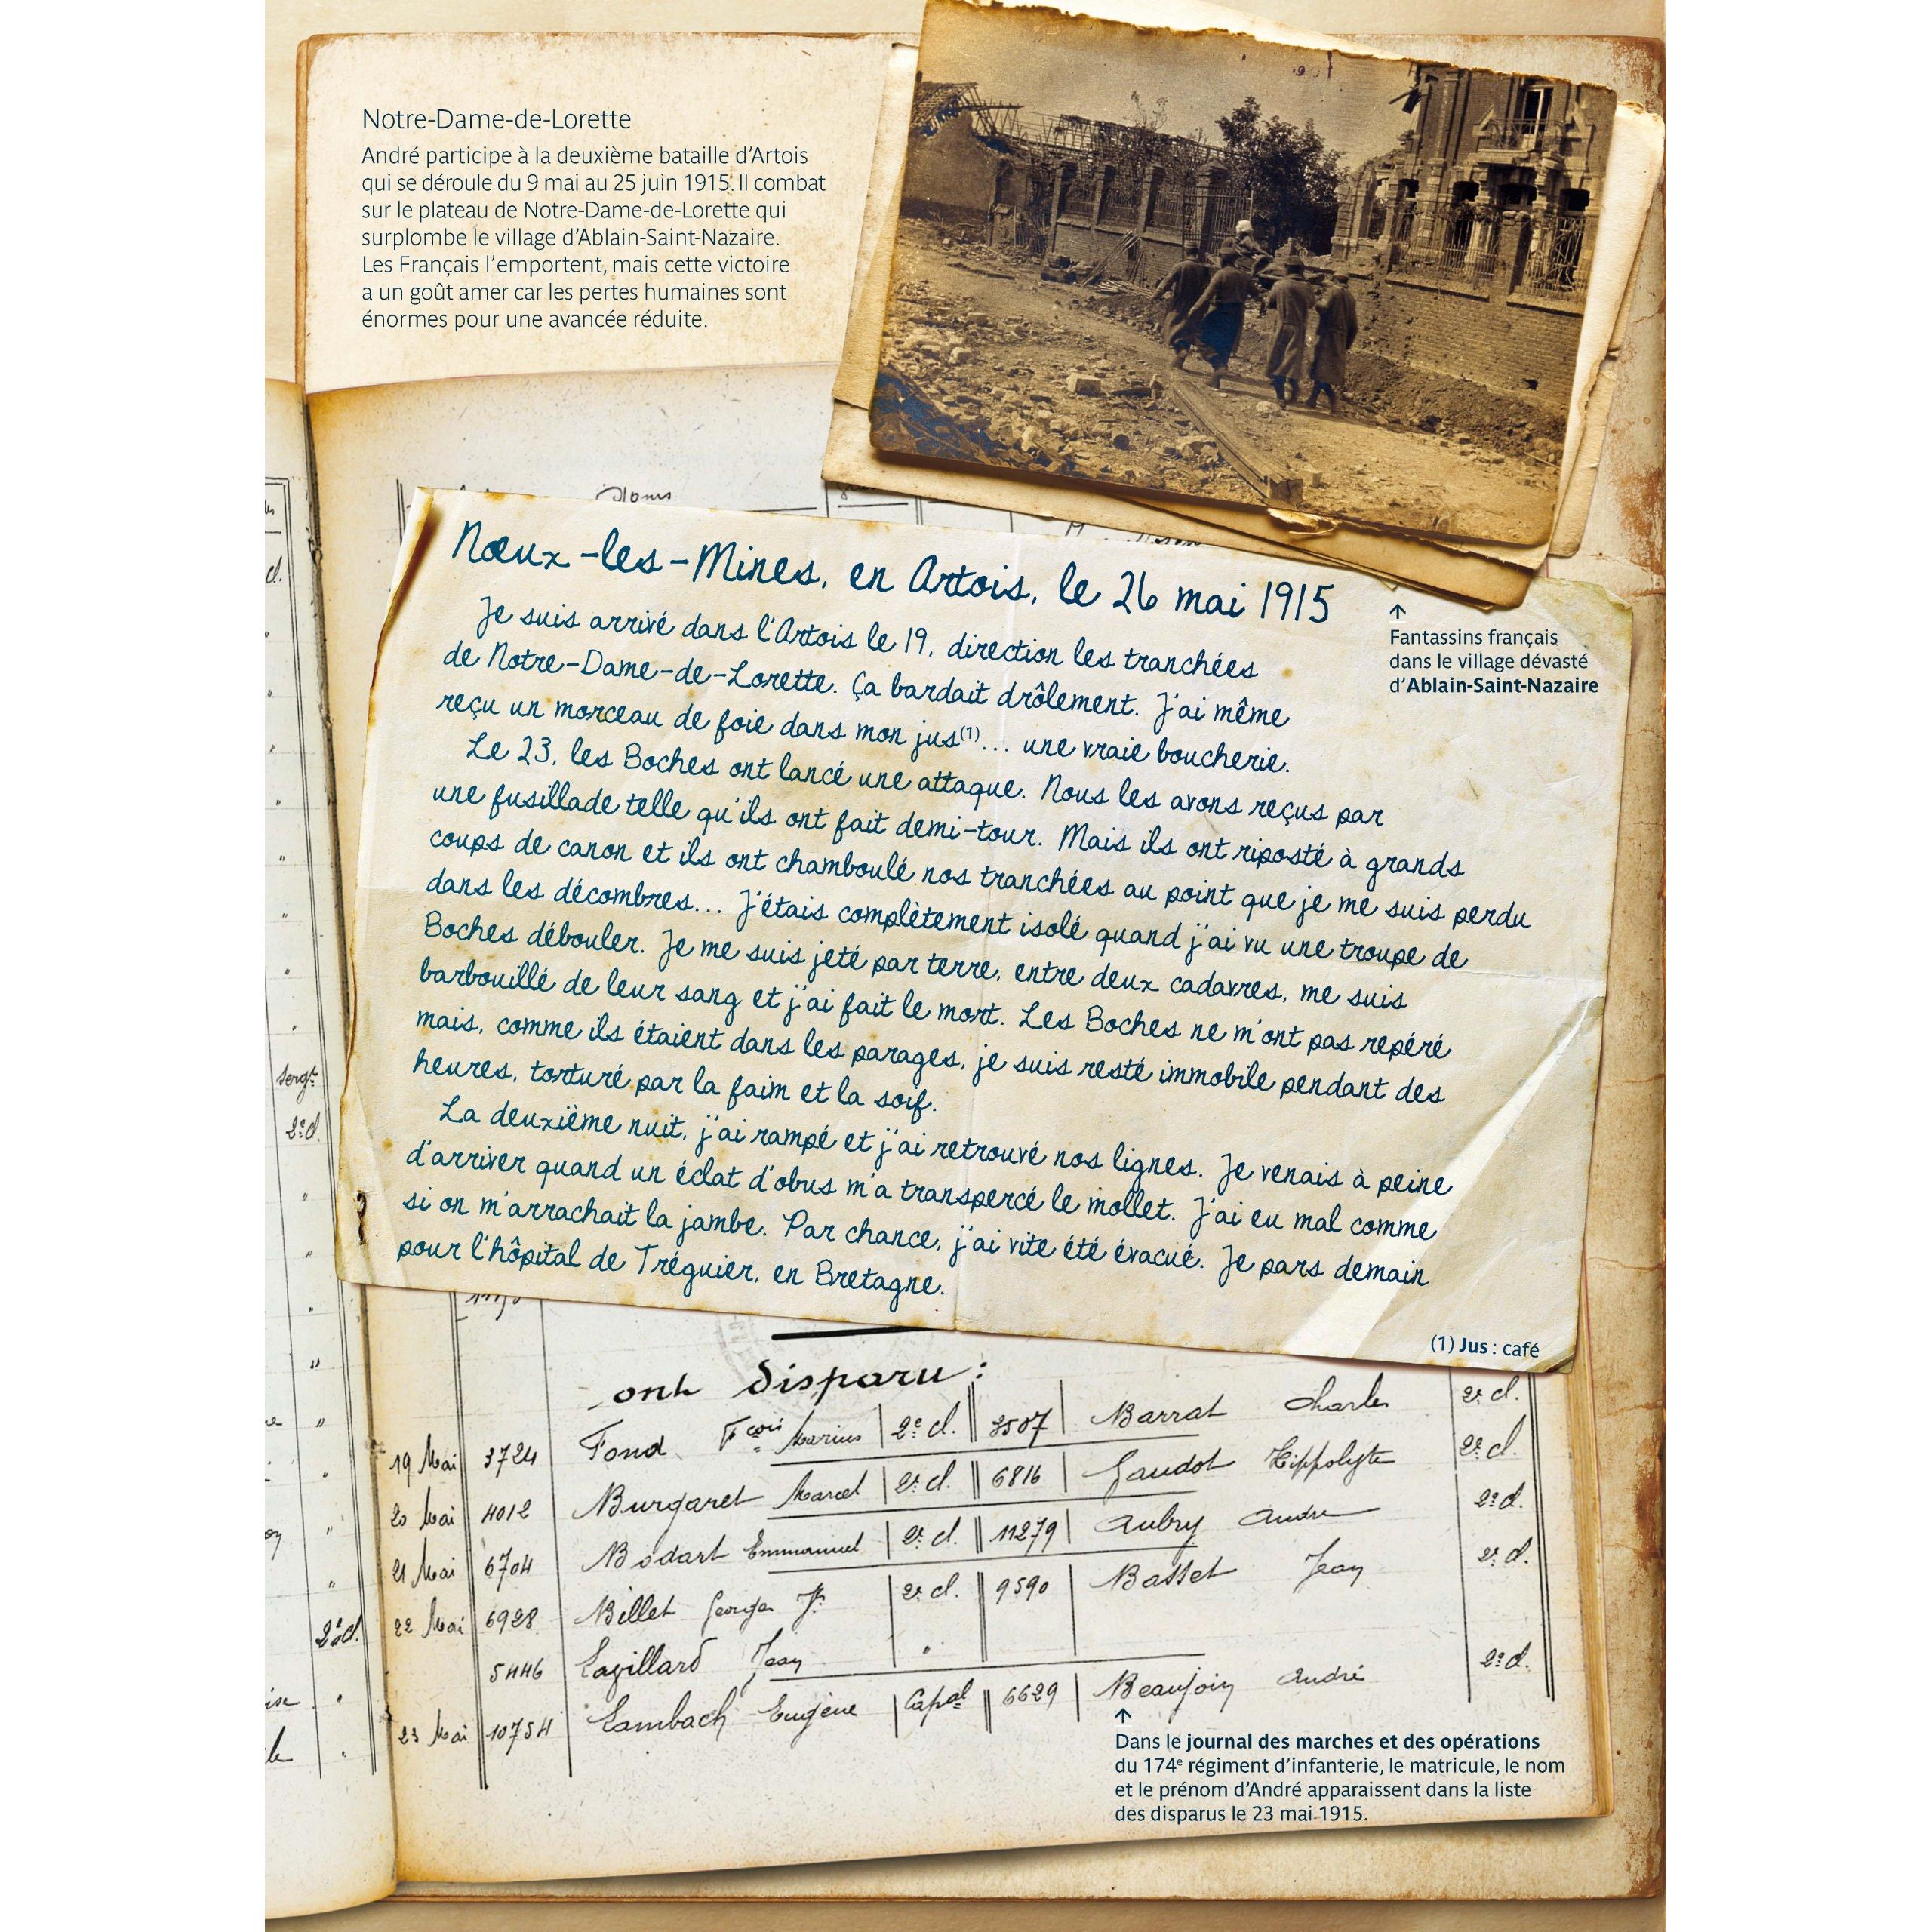 Notre-Dame-de-Lorette
André participe à la deuxième bataille d'Artois
qui se déroule du 9 mai au 25 juin 1915. Il combat
sur le plateau de Notre-Dame-de-Lorette qui
surplombe le village d'Ablain-Saint-Nazaire.
Les Français l'emportent, mais cette victoire
a un goût amer car les pertes humaines sont
énormes pour une avancée réduite.
Nœux-les-Mines, en Artois, le 26 mai 1915
Je suis arrivé dans l'Artois le 19, direction les tranchées
de Notre-Dame-de-Lorette. Ça bardait drôlement. J'ai même
reçu un morceau de foie dans mon jus(1)... une vraie boucherie.
Le 23, les Boches ont lancé une attaque. Nous les avons reçus par
une fusillade telle qu'ils ont fait demi-tour. Mais ils ont riposté à grands
coups de canon et ils ont chamboulé nos tranchées au point que je me suis perdu
dans les décombres... J'étais complètement isolé quand j'ai vu une troupe de
Boches débouler. Je me suis jeté par terre, entre deux cadavres, me suis
barbouillé de leur sang et j'ai fait le mort. Les Boches ne m'ont pas repéré
mais, comme ils étaient dans les parages, je suis resté immobile pendant des
heures, torturé par la faim et la soif.
La deuxième nuit, j'ai rampé et j'ai retrouvé nos lignes. Je venais à peine
d'arriver quand un éclat d'obus m'a transpercé le mollet. J'ai eu mal comme
si on m'arrachait la jambe. Par chance, j'ai vite été évacué. Je pars demain
pour l'hôpital de Tréguier, en Bretagne.
(1) Jus : café
↑
Fantassins français
dans le village dévasté
d'Ablain-Saint-Nazaire
Sergt
2e cl.
ont disparu :
19 Mai 3724 Fond Fçois Marius 2e cl. 3507 Barrat Charles 2e cl.
20 Mai 4012 Burgaret Marcel 2e cl. 6816 Gaudot Hippolyte 2e cl.
21 Mai 6704 Bodart Emmanuel 2e cl. 11279 Aubry André 2e cl.
22 Mai 6928 Billet Georges 2e cl. 9590 Basset Jean 2e cl.
5446 Lagillard Jean "
23 Mai 10754 Lambach Eugène Capal 6629 Beaujoin André 2e cl.
↑
Dans le journal des marches et des opérations
du 174e régiment d'infanterie, le matricule, le nom
et le prénom d'André apparaissent dans la liste
des disparus le 23 mai 1915.